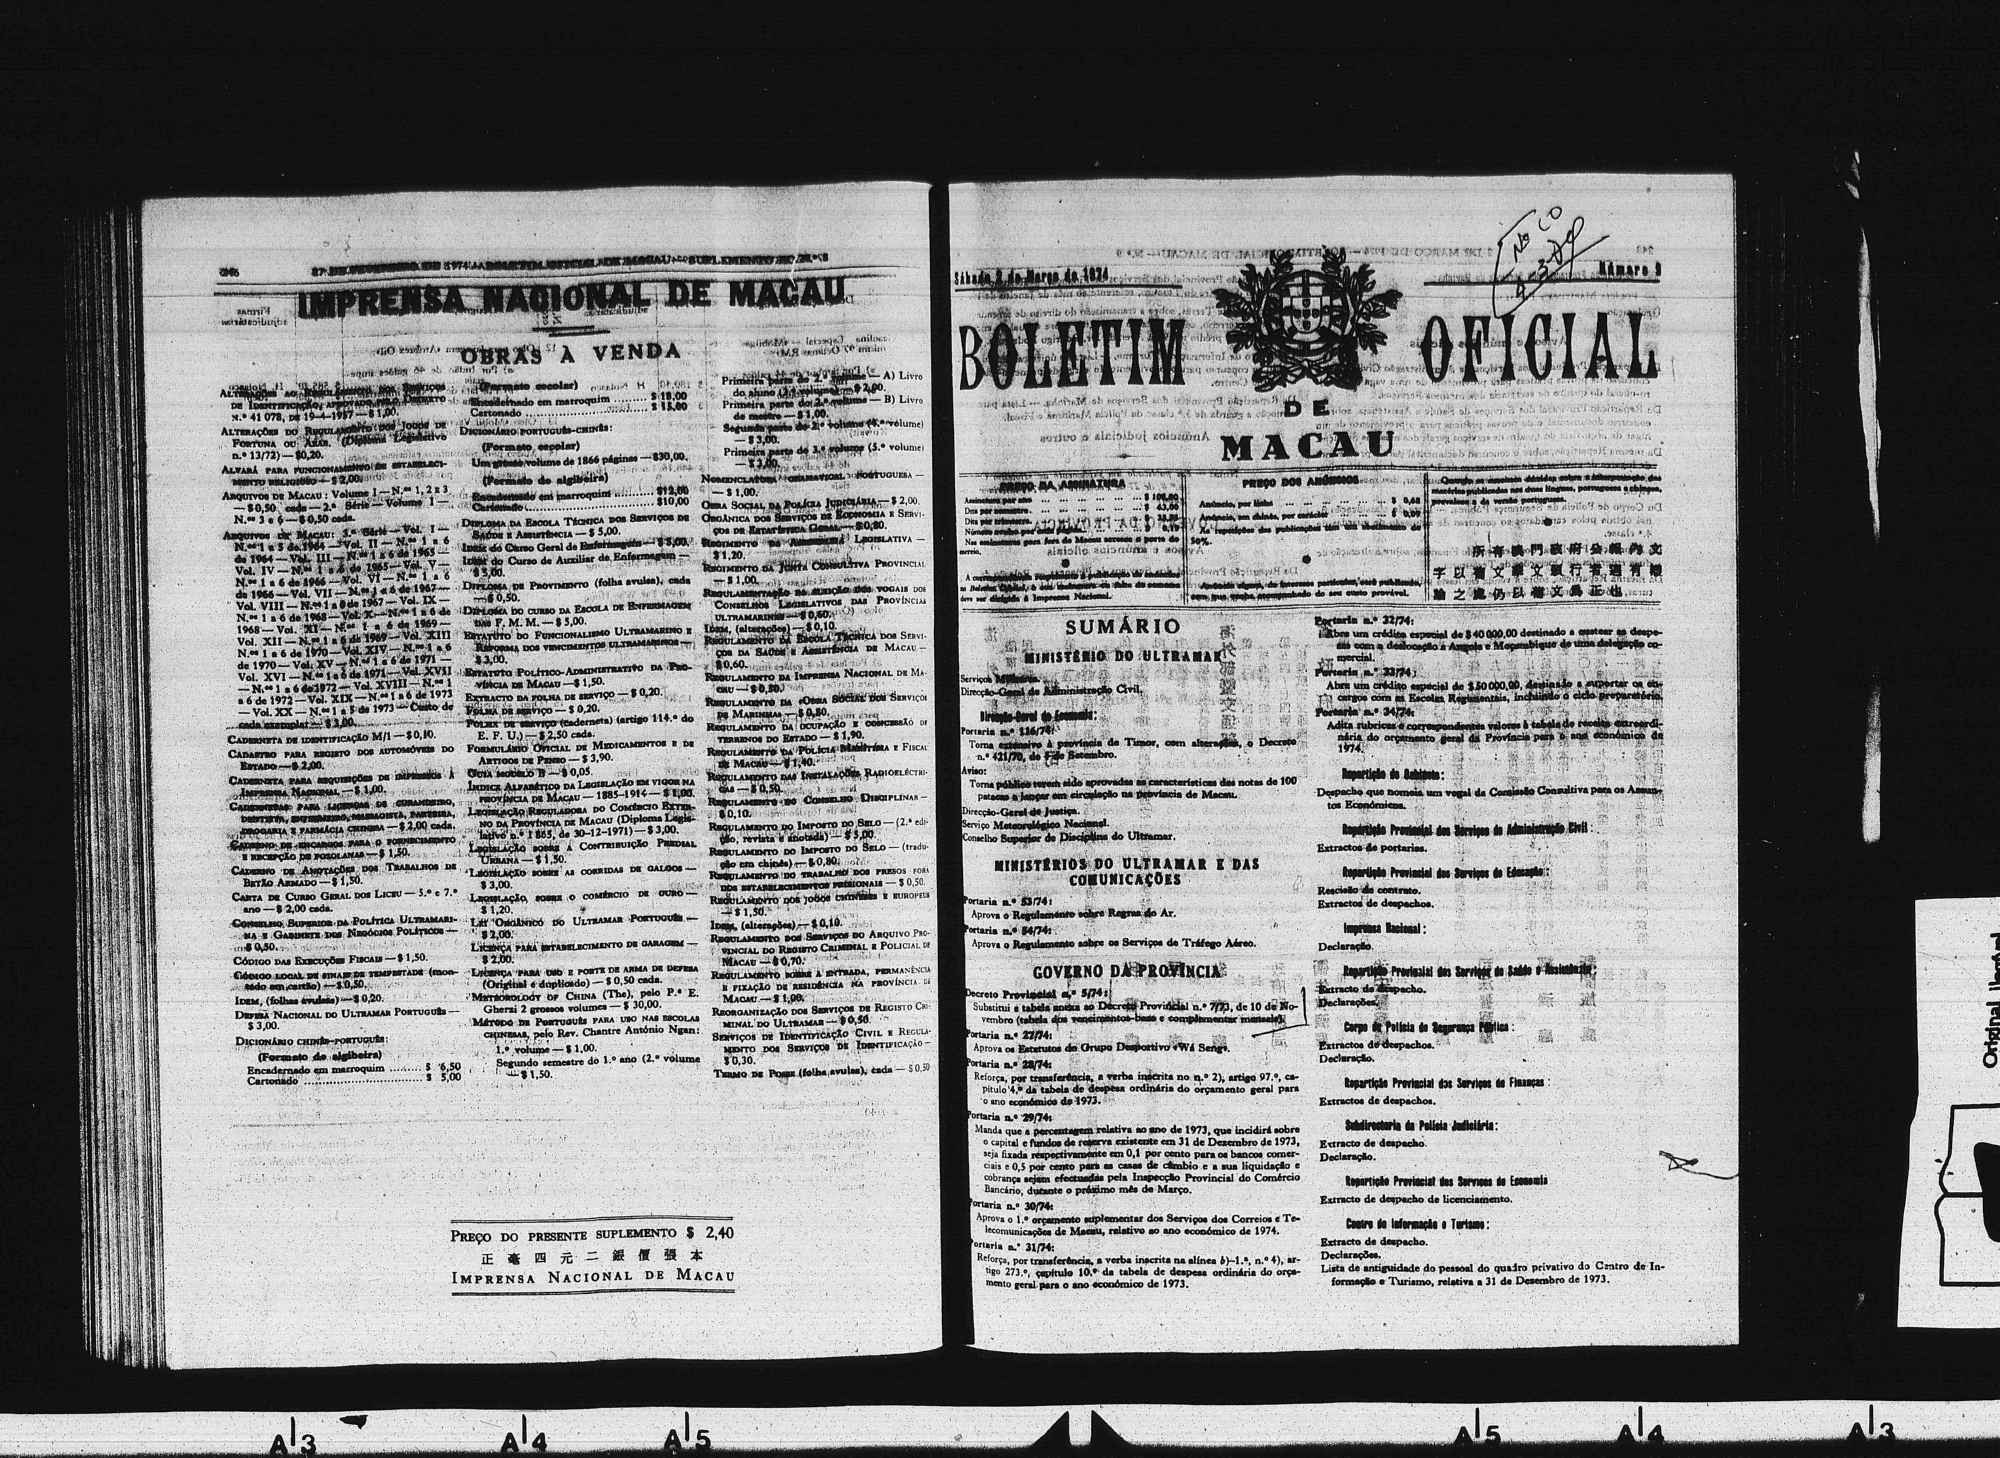 IMPRENSA NACIONAL DE MACAU
OBRAS À VENDA
ALTERAÇÕES AO REGULAMENTO DOS SERVIÇOS
DE IDENTIFICAÇÃO, APROVADO PELO DECRETO
N.º 41 078, DE 19-4-1957 — $ 1,00.
ALTERAÇÕES DO REGULAMENTO DOS JOGOS DE
FORTUNA OU AZAR. (Diploma Legislativo
n.º 13/72) — $0,20.
ALVARÁ PARA FUNCIONAMENTO DE ESTABELECI-
MENTO RELIGIOSO — $ 2,00.
ARQUIVOS DE MACAU: Volume I — N.os 1, 2 e 3
— $ 0,50 cada — 2.ª Série — Volume I —
N.os 3 a 6 — $ 0,50 cada.
ARQUIVOS DE MACAU: 3.ª Série — Vol. I —
N.os 1 a 5 de 1964 — Vol. II — N.os 1 a 6
de 1964 — Vol. III — N.os 1 a 6 de 1965 —
Vol. IV — N.os 1 a 6 de 1965 — Vol. V —
N.os 1 a 6 de 1966 — Vol. VI — N.os 1 a 6
de 1966 — Vol. VII — N.os 1 a 6 de 1967 —
Vol. VIII — N.os 1 a 6 de 1967 — Vol. IX —
N.os 1 a 6 de 1968 — Vol. X — N.os 1 a 6 de
1968 — Vol. XI — N.os 1 a 6 de 1969 —
Vol. XII — N.os 1 a 6 de 1969 — Vol. XIII
N.os 1 a 6 de 1970 — Vol. XIV — N.os 1 a 6
de 1970 — Vol. XV — N.os 1 a 6 de 1971 —
Vol. XVI — N.os 1 a 6 de 1971 — Vol. XVII
— N.os 1 a 6 de 1972 — Vol. XVIII — N.os 1
a 6 de 1972 — Vol. XIX — N.os 1 a 6 de 1973
— Vol. XX — N.os 1 a 5 de 1973 — Custo de
cada exemplar — $ 3,00.
CADERNETA DE IDENTIFICAÇÃO M/1 — $ 0,10.
CADASTRO PARA REGISTO DOS AUTOMÓVEIS DO
ESTADO — $ 2,00.
CADERNETA PARA REQUISIÇÕES DE IMPRESSOS À
IMPRENSA NACIONAL — $ 1,00.
CADERNETAS PARA LICENÇAS DE CURANDEIRO,
DENTISTA, ENFERMEIRO, MASSAGISTA, PARTEIRA,
DROGARIA E FARMÁCIA CHINESA — $ 2,00 cada.
CADERNO DE ENCARGOS PARA O FORNECIMENTO
E RECEPÇÃO DE POSOLANAS — $ 1,50.
CADERNO DE ANOTAÇÕES DOS TRABALHOS DE
BETÃO ARMADO — $ 1,50.
CARTA DE CURSO GERAL DOS LICEU — 5.º e 7.º
ano — $ 2,00 cada.
CONSELHO SUPERIOR DA POLÍTICA ULTRAMARI-
NA E GABINETE DOS NEGÓCIOS POLÍTICOS —
$ 0,50.
CÓDIGO DAS EXECUÇÕES FISCAIS — $ 1,50.
CÓDIGO LOCAL DE SINAIS DE TEMPESTADE (mon-
tado em cartão) — $ 0,50.
IDEM, (folhas avulsas) — $ 0,20.
DEFESA NACIONAL DO ULTRAMAR PORTUGUÊS —
$ 3,00.
DICIONÁRIO CHINÊS-PORTUGUÊS:
(Formato de algibeira)
Encadernado em marroquim ......... $ 6,50
Cartonado .............................. $ 5,00
(Formato escolar)
Encadernado em marroquim ......... $ 18,00
Cartonado .............................. $ 15,00
DICIONÁRIO PORTUGUÊS-CHINÊS:
(Formato escolar)
Um grosso volume de 1866 páginas — $30,00.
(Formato de algibeira)
Encadernado em marroquim .......... $12,00
Cartonado .............................. $10,00
DIPLOMA DA ESCOLA TÉCNICA DOS SERVIÇOS DE
SAÚDE E ASSISTÊNCIA — $ 5,00.
IDEM do Curso Geral de Enfermagem — $ 5,00.
IDEM do Curso de Auxiliar de Enfermagem —
$ 5,00.
DIPLOMA DE PROVIMENTO (folha avulsa), cada
— $ 0,50.
DIPLOMA DO CURSO DA ESCOLA DE ENFERMAGEM
DAS F. M. M. — $ 5,00.
ESTATUTO DO FUNCIONALISMO ULTRAMARINO E
REFORMA DOS VENCIMENTOS ULTRAMARINOS —
$ 3,00.
ESTATUTO POLÍTICO-ADMINISTRATIVO DA PRO-
VÍNCIA DE MACAU — $ 1,50.
EXTRACTO DA FOLHA DE SERVIÇO — $ 0,20.
FOLHA DE SERVIÇO — $ 0,20.
FOLHA DE SERVIÇO (caderneta) (artigo 114.º do
E. F. U.) — $ 2,50 cada.
FORMULÁRIO OFICIAL DE MEDICAMENTOS E DE
ARTIGOS DE PENSO — $ 3,90.
GUIA MODELO B — $ 0,05.
ÍNDICE ALFABÉTICO DA LEGISLAÇÃO EM VIGOR NA
PROVÍNCIA DE MACAU — 1885-1914 — $ 1,00.
LEGISLAÇÃO REGULADORA DO COMÉRCIO EXTER-
NO DA PROVÍNCIA DE MACAU (Diploma Legis-
lativo n.º 1 865, de 30-12-1971) — $ 3,00.
LEGISLAÇÃO SOBRE A CONTRIBUIÇÃO PREDIAL
URBANA — $ 1,50.
LEGISLAÇÃO SOBRE AS CORRIDAS DE GALGOS —
$ 3,00.
LEGISLAÇÃO, SOBRE O COMÉRCIO DE OURO —
$ 1,20.
LEI ORGÂNICO DO ULTRAMAR PORTUGUÊS —
$ 2,00.
LICENÇA PARA ESTABELECIMENTO DE GARAGEM —
$ 2,00.
LICENÇA PARA USO E PORTE DE ARMA DE DEFESA
(Original e duplicado) — $ 0,50 cada.
METEOROLOGY OF CHINA (The), pelo P.e E.
Gherzi 2 grossos volumes — $ 30,00.
MÉTODO DE PORTUGUÊS PARA USO NAS ESCOLAS
CHINESAS, pelo Rev. Chantre António Ngan:
1.º volume — $ 1,00.
Segundo semestre do 1.º ano (2.º volume
— $ 1,50.
Primeira parte do 2.º volume — A) Livro
do aluno (3.º volume) — $ 2,00.
Primeira parte do 2.º volume — B) Livro
de mestre — $ 1,00.
Segunda parte do 2.º volume (4.º volume)
— $ 3,00.
Primeira parte do 3.º volume (5.º volume)
— $ 3,00.
NOMENCLATURA GRAMATICAL PORTUGUESA —
— $ 1,00.
OBRA SOCIAL DA POLÍCIA JUDICIÁRIA — $ 2,00.
ORGÂNICA DOS SERVIÇOS DE ECONOMIA E SERVI-
ÇOS DE ESTATÍSTICA GERAL — $ 0,80.
REGIMENTO DA ASSEMBLEIA LEGISLATIVA —
$ 1,20.
REGIMENTO DA JUNTA CONSULTIVA PROVINCIAL
— $ 1,00.
REGULAMENTAÇÃO DA ELEIÇÃO DOS VOGAIS DOS
CONSELHOS LEGISLATIVOS DAS PROVÍNCIAS
ULTRAMARINAS — $ 0,60.
IDEM, (alterações) — $ 0,10.
REGULAMENTO DA ESCOLA TÉCNICA DOS SERVI-
ÇOS DA SAÚDE E ASSISTÊNCIA DE MACAU —
$ 0,60.
REGULAMENTO DA IMPRENSA NACIONAL DE MA-
CAU — $ 0,80.
REGULAMENTO DA «OBRA SOCIAL DOS SERVIÇOS
DE MARINHA» — $ 0,80.
REGULAMENTO DA OCUPAÇÃO E CONCESSÃO DE
TERRENOS DO ESTADO — $ 1,90.
REGULAMENTO DA POLÍCIA MARÍTIMA E FISCAL
DE MACAU — $ 1,40.
REGULAMENTO DAS INSTALAÇÕES RADIOELÉCTRI-
CAS — $ 0,50.
REGULAMENTO DO CONSELHO DISCIPLINAR —
$ 0,10.
REGULAMENTO DO IMPOSTO DO SELO — (2.ª edi-
ção, revista e anotada) — $ 5,00.
REGULAMENTO DO IMPOSTO DO SELO — (tradu-
ção em chinês) — $ 0,80.
REGULAMENTO DO TRABALHO DOS PRESOS FORA
DOS ESTABELECIMENTOS PRISIONAIS — $ 0,50.
REGULAMENTO DOS JOGOS CHINESES E EUROPEUS
— $ 1,50.
IDEM, (alterações) — $ 0,10.
REGULAMENTO DOS SERVIÇOS DO ARQUIVO PRO-
VINCIAL DO REGISTO CRIMINAL E POLICIAL DE
MACAU — $ 0,70.
REGULAMENTO SOBRE A ENTRADA, PERMANÊNCIA
E FIXAÇÃO DE RESIDÊNCIA NA PROVÍNCIA DE
MACAU — $ 1,00.
REORGANIZAÇÃO DOS SERVIÇOS DE REGISTO CRI-
MINAL DO ULTRAMAR — $ 0,50.
SERVIÇOS DE IDENTIFICAÇÃO CIVIL E REGULA-
MENTO DOS SERVIÇOS DE IDENTIFICAÇÃO —
$ 0,30.
TERMO DE POSSE (folha avulsa), cada — $ 0,50
PREÇO DO PRESENTE SUPLEMENTO $ 2,40
正毫四元二銀價張本
IMPRENSA NACIONAL DE MACAU
Sábado, 2 de Março de 1974
Número 9
BOLETIM OFICIAL
DE
MACAU
PREÇO DA ASSINATURA
PREÇO DOS ANÚNCIOS
所有澳門政府公報內文
字以葡文華文頒行者遇有疑
論之處仍以葡文為正也
SUMÁRIO
MINISTÉRIO DO ULTRAMAR
Serviços Militares.
Direcção-Geral de Administração Civil.
Direcção-Geral de Economia:
Portaria n.º 116/74:
Torna extensivo à província de Timor, com alterações, o Decreto
n.º 421/70, de de Setembro.
Aviso:
Torna público terem sido aprovadas as características das notas de 100
patacas a lançar em circulação na província de Macau.
Direcção-Geral de Justiça.
Serviço Meteorológico Nacional.
Conselho Superior de Disciplina do Ultramar.
MINISTÉRIOS DO ULTRAMAR E DAS
COMUNICAÇÕES
Portaria n.º 53/74:
Aprova o Regulamento sobre Regras do Ar.
Portaria n.º 54/74:
Aprova o Regulamento sobre os Serviços de Tráfego Aéreo.
GOVERNO DA PROVÍNCIA
Decreto Provincial n.º 5/74:
Substitui a tabela anexa ao Decreto Provincial n.º 7/73, de 10 de No-
vembro (tabela dos vencimentos-base e complementar mensais).
Portaria n.º 27/74:
Aprova os Estatutos do Grupo Desportivo «Wá Seng».
Portaria n.º 28/74:
Reforça, por transferência, a verba inscrita no n.º 2), artigo 97.º, ca-
pítulo 4.º da tabela de despesa ordinária do orçamento geral para
o ano económico de 1973.
Portaria n.º 29/74:
Manda que a percentagem relativa ao ano de 1973, que incidirá sobre
o capital e fundos de reserva existente em 31 de Dezembro de 1973,
seja fixada respectivamente em 0,1 por cento para os bancos comer-
ciais e 0,5 por cento para as casas de câmbio e a sua liquidação e
cobrança sejam efectuadas pela Inspecção Provincial do Comércio
Bancário, durante o próximo mês de Março.
Portaria n.º 30/74:
Aprova o 1.º orçamento suplementar dos Serviços dos Correios e Te-
lecomunicações de Macau, relativo ao ano económico de 1974.
Portaria n.º 31/74:
Reforça, por transferência, a verba inscrita na alínea b)-1.ª, n.º 4), ar-
tigo 273.º, capítulo 10.º da tabela de despesa ordinária do orça-
mento geral para o ano económico de 1973.
Portaria n.º 32/74:
Abre um crédito especial de $ 40 000,00 destinado a custear as despe-
sas com a deslocação a Angola e Moçambique de uma delegação co-
mercial.
Portaria n.º 33/74:
Abre um crédito especial de $ 50 000,00, destinado a suportar os en-
cargos com as Escolas Regimentais, incluindo o ciclo preparatório.
Portaria n.º 34/74:
Adita rubricas e correspondentes valores à tabela de receita extraordi-
nária do orçamento geral da Província para o ano económico de
1974.
Repartição do Gabinete:
Despacho que nomeia um vogal da Comissão Consultiva para os Assun-
tos Económicos.
Repartição Provincial dos Serviços de Administração Civil:
Extractos de portarias.
Repartição Provincial dos Serviços de Educação:
Rescisão de contrato.
Extractos de despachos.
Imprensa Nacional:
Declaração.
Repartição Provincial dos Serviços de Saúde e Assistência:
Extracto de despacho.
Declarações.
Corpo de Polícia de Segurança Pública:
Extractos de despachos.
Declaração.
Repartição Provincial dos Serviços de Finanças:
Extractos de despachos.
Subdirectoria da Polícia Judiciária:
Extracto de despacho.
Declaração.
Repartição Provincial dos Serviços de Economia
Extracto de despacho de licenciamento.
Centro de Informação e Turismo:
Extracto de despacho.
Declarações.
Lista de antiguidade do pessoal do quadro privativo do Centro de In-
formação e Turismo, relativa a 31 de Dezembro de 1973.
A 3
A 4
A 5
A 5
A 4
A 3
Original